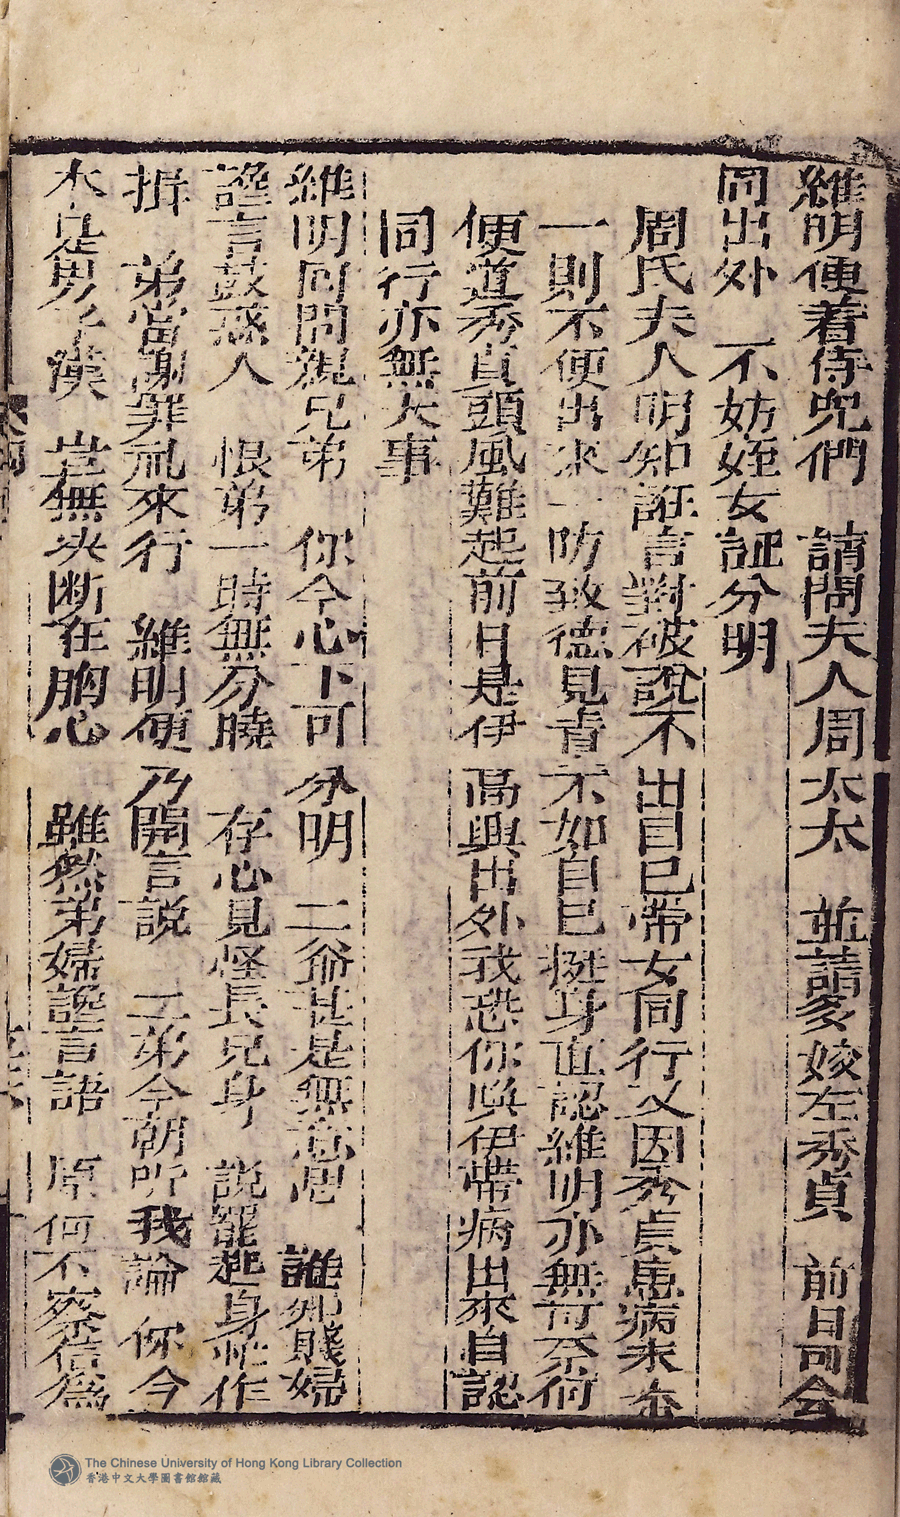 維明便着侍兒們　請問夫人周太太　並請爹嫂左秀貞　前日可会
同出外　不妨姪女証分明
周氏夫人明知誑言對破說不出自已帶女同行又因秀貞患病未去
一則不便出來一防致德見責不如自已挺身直認維明亦無可奈何
便道秀貞頭風難起前日是伊高興出外我恐你與伊帶病出來自認
同行亦無大事
維明回問親兄弟　你今心下可分明　二爺甚是無意思　誰知賤婦
讒言鼓惑人　恨弟一時無分曉　存心見怪長兄身　說罷起身忙作
揖　弟當謝罪礼來行　維明便乃開言説　二弟今朝听我論　你今
本是男子漢　豈無決断在胸心　雖然弟婦讒言語　原何不察信為
The Chinese University of Hong Kong Library Collection
香港中文大學圖書館館藏